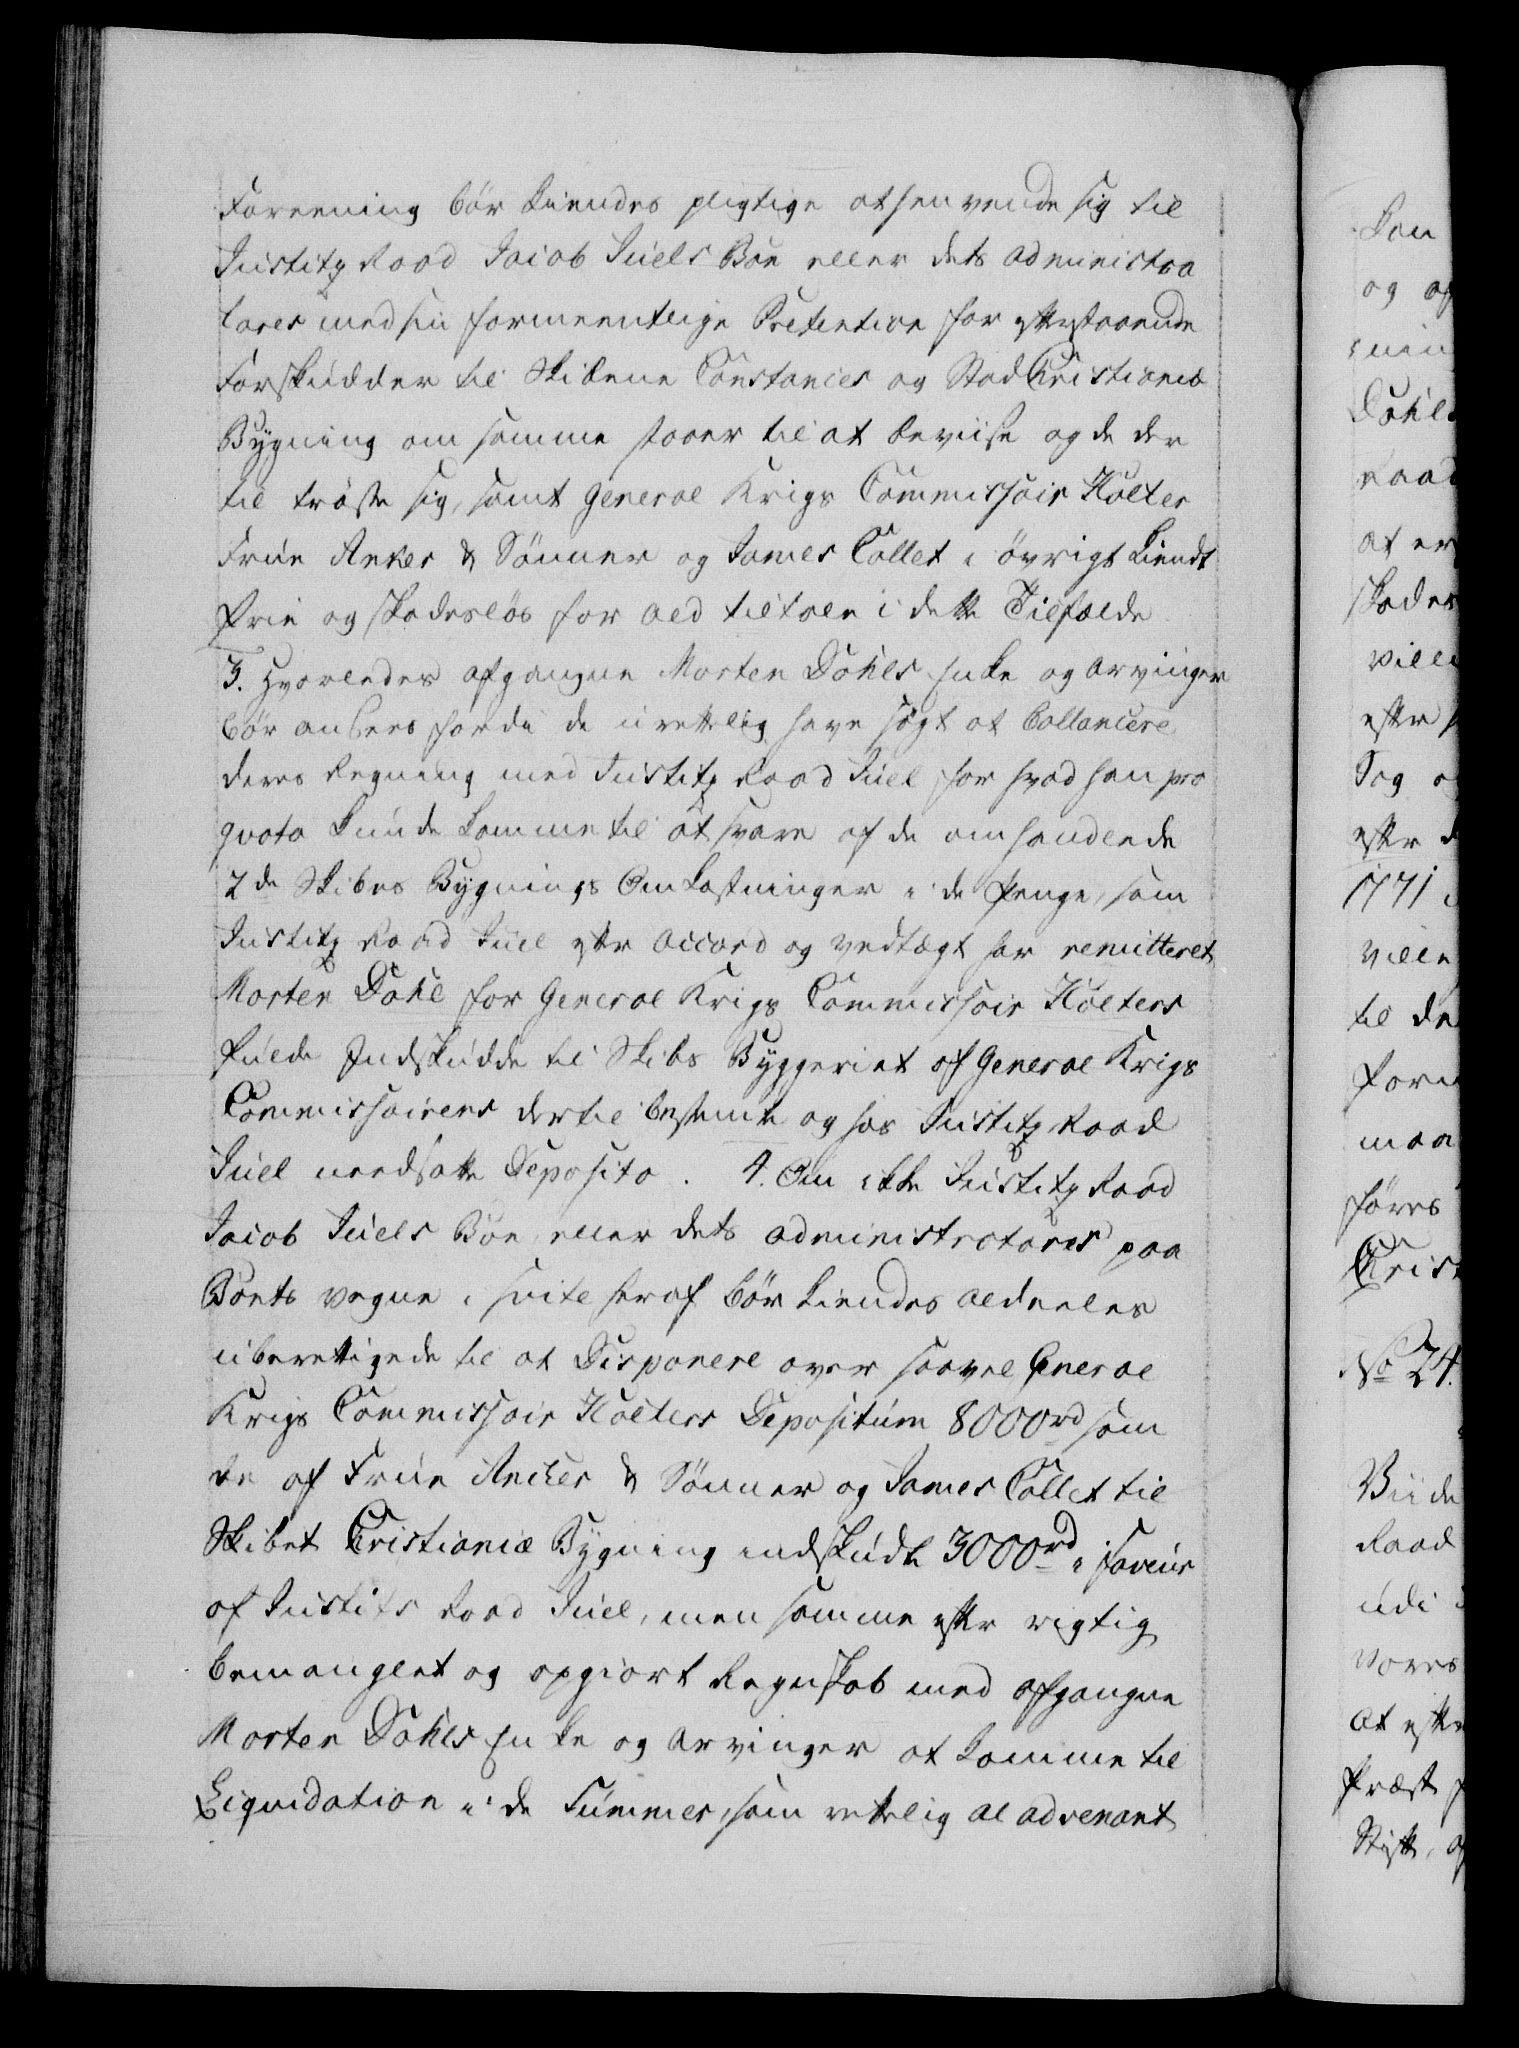 Foreening bör kiendes pligtige at henvende sig til
Justitz Raad Jacob Juels Boe eller dets administra
tores med sin formeentlige Prætention for efterstaaende
Forskudder til Skibene Constancies og Stad Christianiæ
Bygning om samme staaer til at beviise og de der
til trøste sig, samt General Krigs Commissair Holter
Frue Anker & Sönner og James Collet i övrigt kiendt
frie og skadesløs for ald tiltale i dette Tilfælde
3. Hvorledes afgangne Morten Dahls Enke og Arvinger
bör ansees fordi de urettelig have søgt at Ballancere
deres Regning med Justitz Raad Juel for hvad han pro
quota kunde komme til at svare af de omhandlede
2de Skibes Bygnings Omkostninger i de Penge, som
Justitz Raad Juel efter Accord og vedtægt har remitteret
Morten Dahl for General Krigs Commissair Holters
fulde Indskudde til Skibs Byggeriet af General Krigs
Commissairens dertil bestemte og hos Justitz Raad
Juel needsatte Deposito. 4. Om ikke Justitz Raad
Jacob Juels Boe eller dets administratores paa
Boets vegne i suite heraf bör kiendes aldeeles
uberettigede til at Disponere over saavel General
Krigs Commissair Holters Depositum 8000rd som
de af Frue Ancker & Sönner og James Collet til
Skibet Christianiæ Bygning indskudte 3000rd i faveur
af Justits Raad Juel, men samme efter rigtig
bemanglet og opgiort Regnskab med afgangne
Morten Dahls Enke og Arvinger at komme til
Liquidation i de Summer, som rettelig al advenant